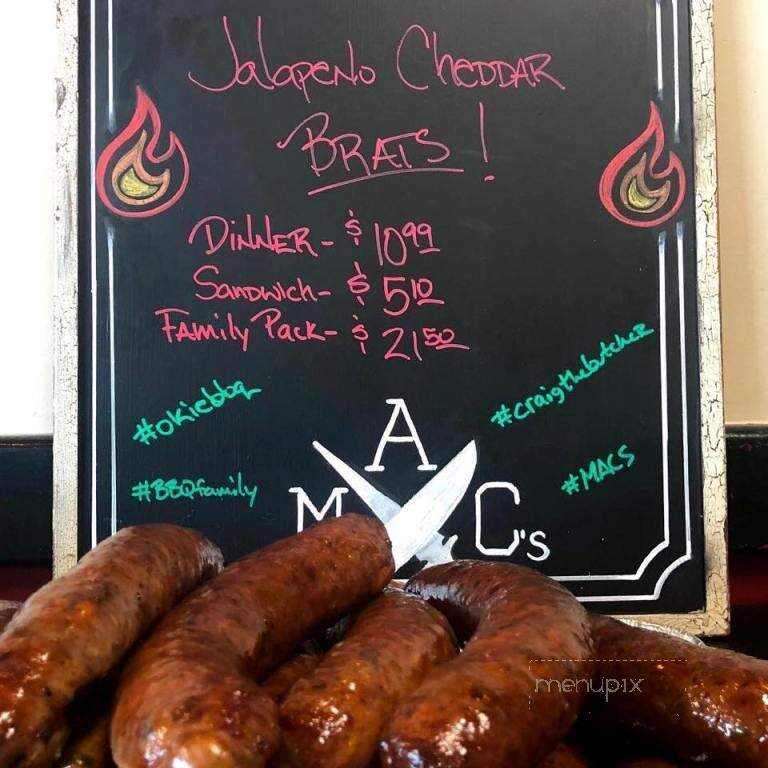 Jalapeno Cheddar
Brats!
Dinner - $10.99
Sandwich - $5.10
Family Pack - $21.50
#craigthebutcher
#okiebbq
#MACS
#BBQfamily
MAC's
menupix